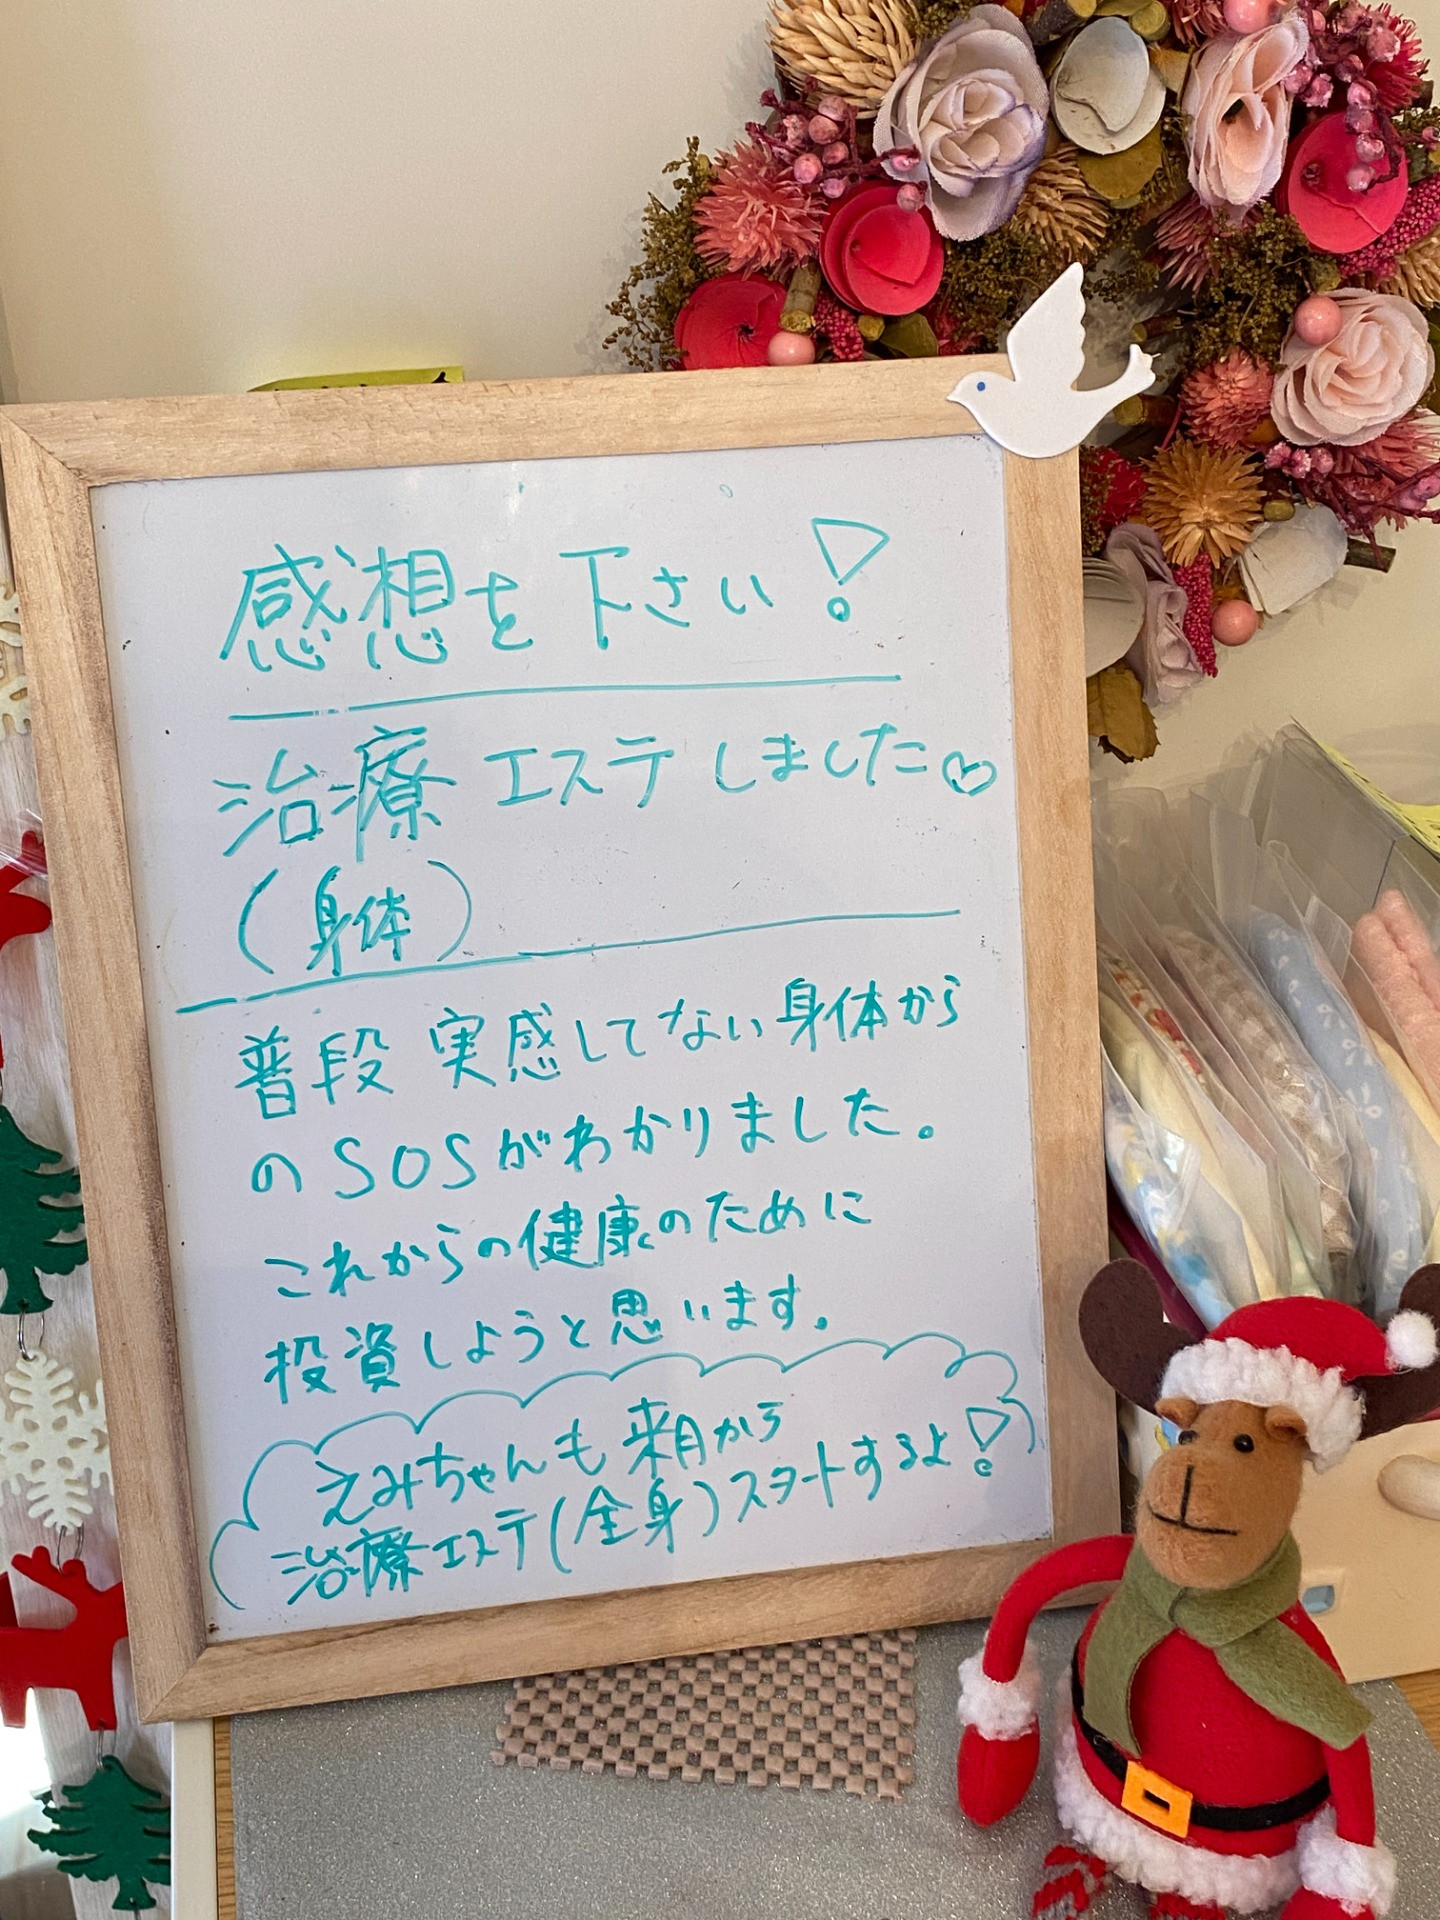 感想を下さい!
治療エステしました♡
(身体)
普段実感してない身体から
のSOSがわかりました。
これからの健康のために
投資しようと思います。
えみちゃんも来月から
治療エステ(全身)スタートするよ!